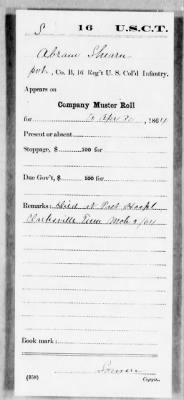 S 16 U.S.C.T.
Abram Shearn
pvt., Co. B, 16 Reg't U. S. Col'd Infantry.
Appears on
Company Muster Roll
for to Apr 30, 1864
Present or absent
Stoppage, $ 100 for
Due Gov't, $ 100 for
Remarks: Died at Post Hospl
Clarksville Tenn Mch 9/64
Book mark:
(358) Copyist.